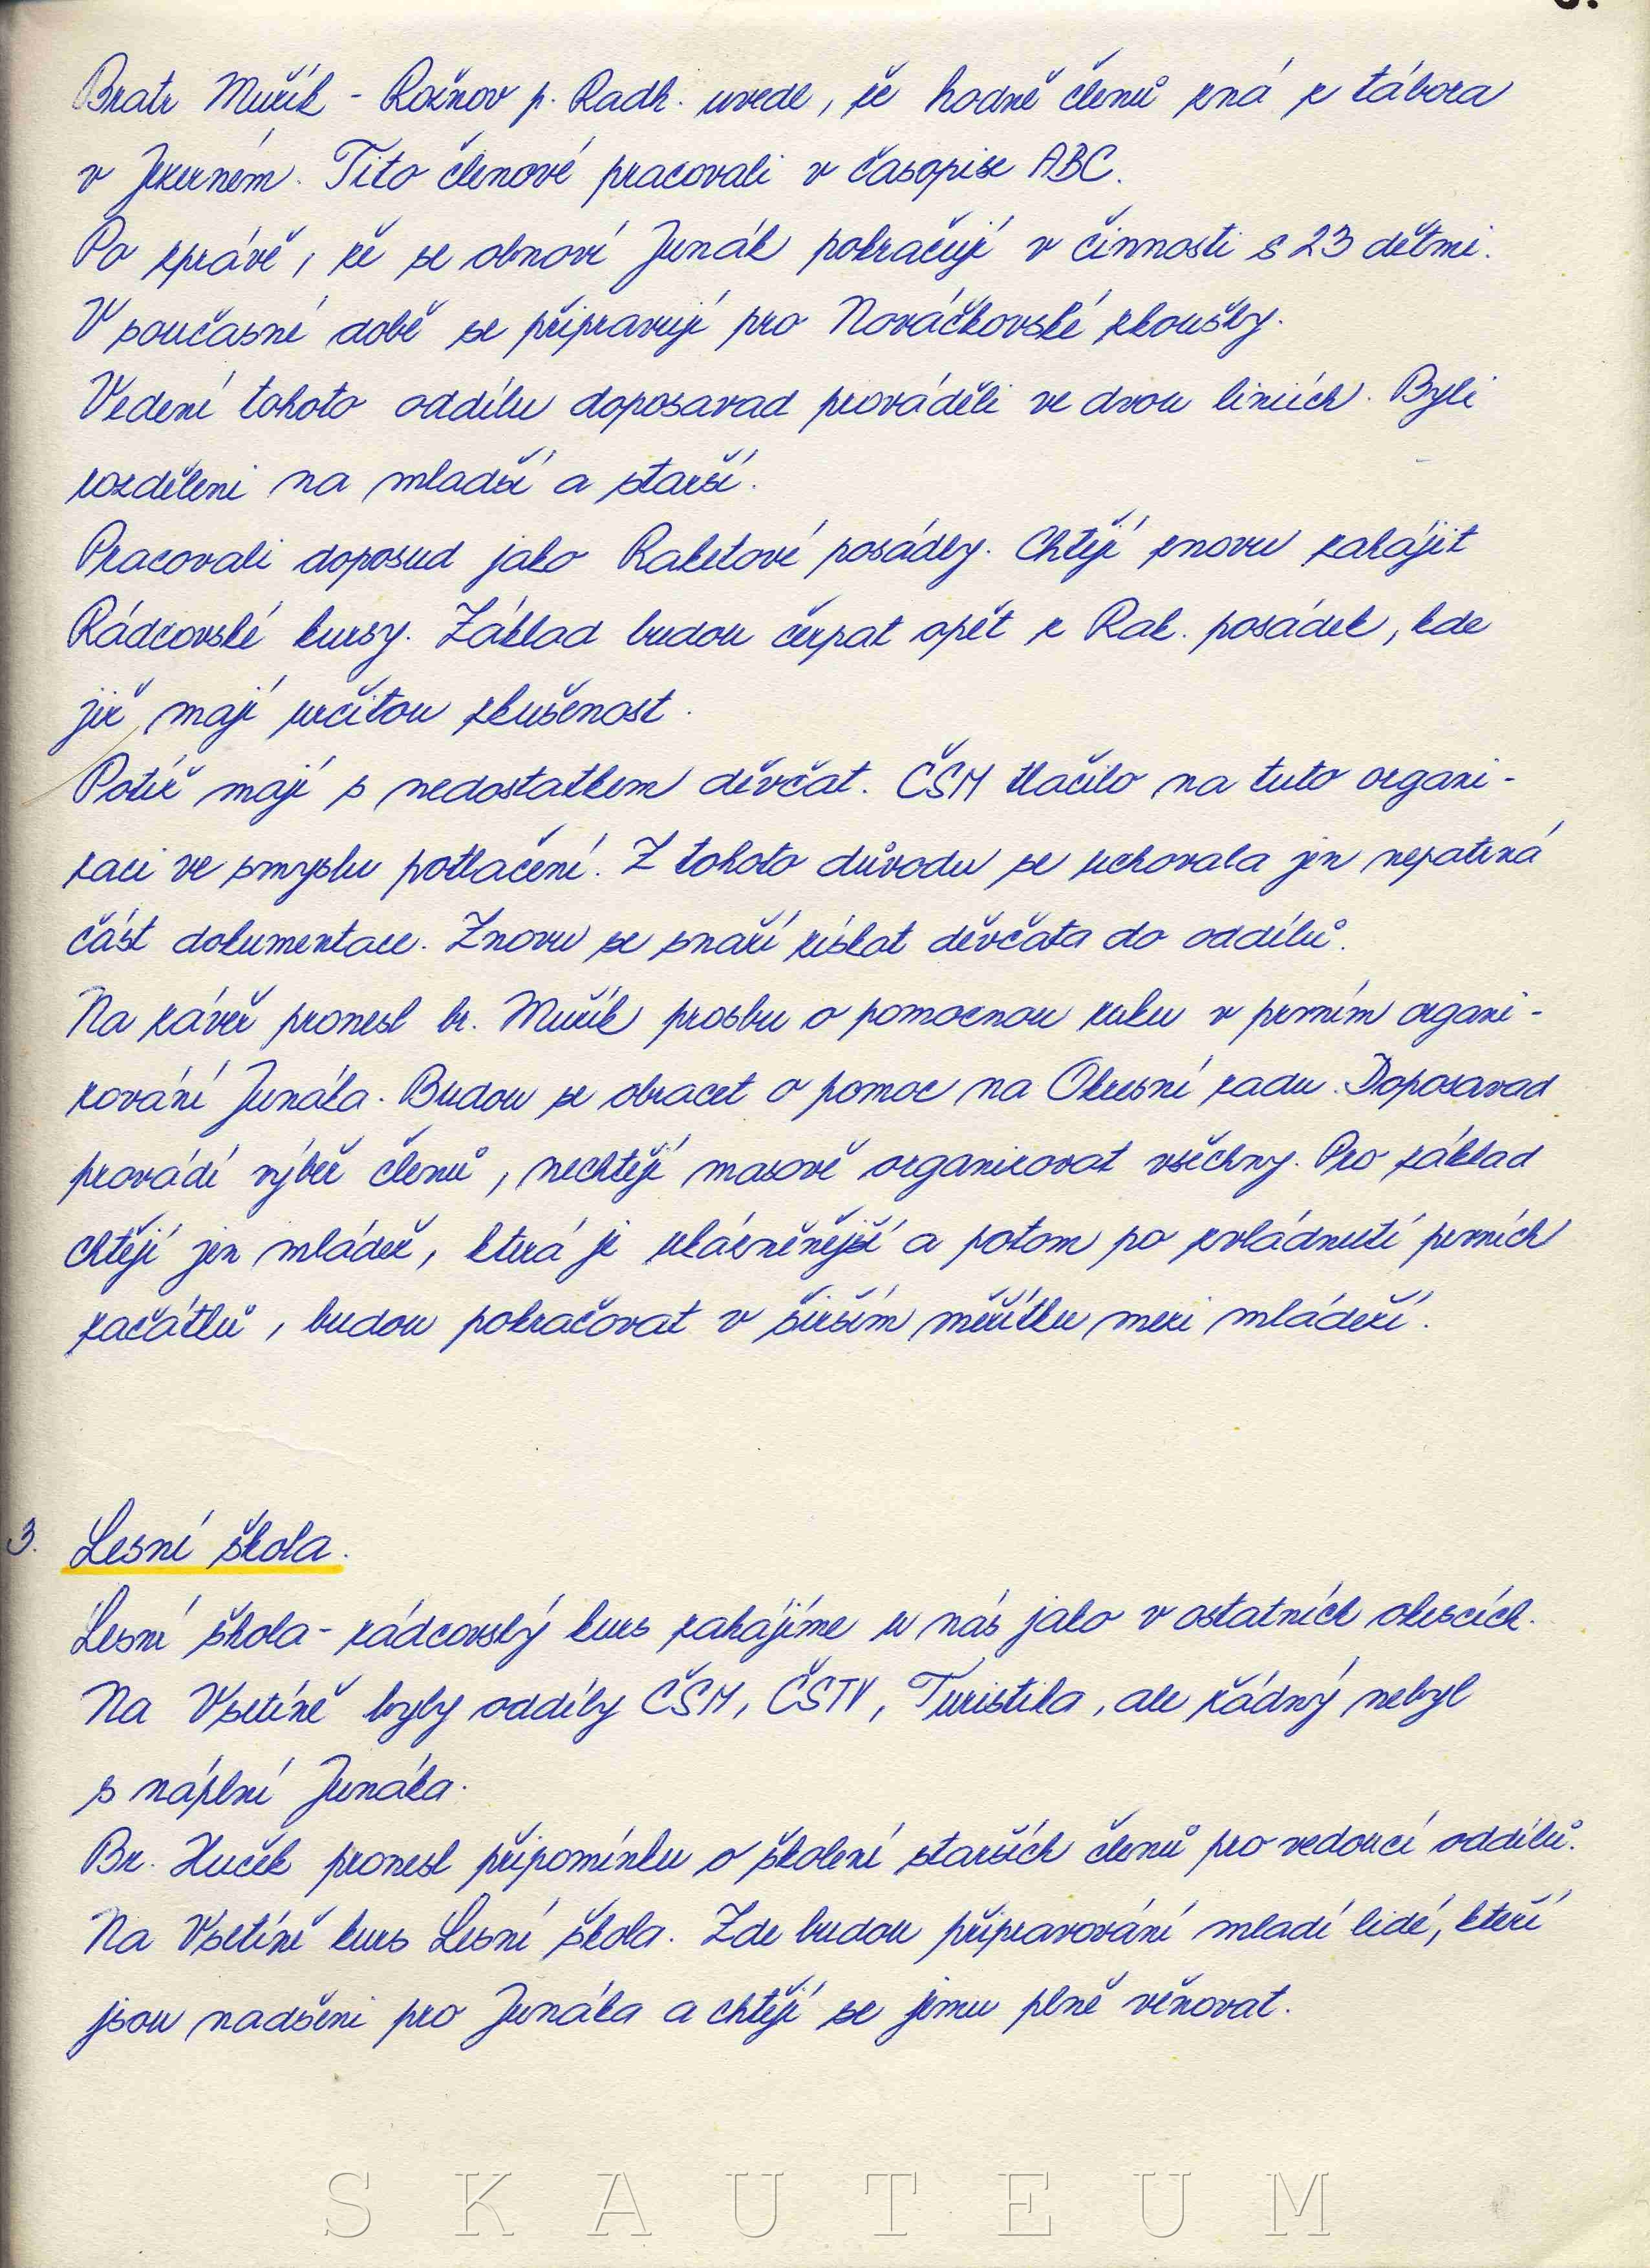 Bratr Muřík - Rožnov p. Radh. uvede, že hodně členů zná z tábora
v Jezerném. Tito členové pracovali v časopise ABC.
Po zprávě, že se obnoví Junák pokračují v činnosti s 23 dětmi.
V současné době se připravují pro Nováčkovské zkoušky.
Vedení tohoto oddílu doposavad prováděli ve dvou liniích. Byli
rozděleni na mladší a starší.
Pracovali doposud jako Raketové posádky. Chtějí znovu zahájit
Rádcovské kursy. Základ budou čerpat opět z Rak. posádek, kde
již mají určitou zkušenost.
Potíž mají s nedostatkem děvčat. ČSM tlačilo na tuto organi-
zaci ve smyslu potlačení. Z tohoto důvodu se uchovala jen nepatrná
část dokumentace. Znovu se snaží získat děvčata do oddílů.
Na závěr pronesl br. Muřík prosbu o pomocnou ruku v prvním organi-
zování Junáka. Budou se obracet o pomoc na Okresní radu. Doposavad
provádí výběr členů, nechtějí masově organizovat všechny. Pro základ
chtějí jen mládež, která je ukázněnější a potom po zvládnutí prvních
začátků, budou pokračovat v širším měřítku mezi mládeží.
3. Lesní škola.
Lesní škola - rádcovský kurs zahájíme u nás jako v ostatních okresích.
Na Vsetíně byly oddíly ČSM, ČSTV, Turistika, ale žádný nebyl
s náplní Junáka.
Br. Huček pronesl připomínku o školení starších členů pro vedoucí oddílů.
Na Vsetíně kurs Lesní škola. Zde budou připravování mladí lidé, kteří
jsou nadšeni pro Junáka a chtějí se jemu plně věnovat.
SKAUTEUM